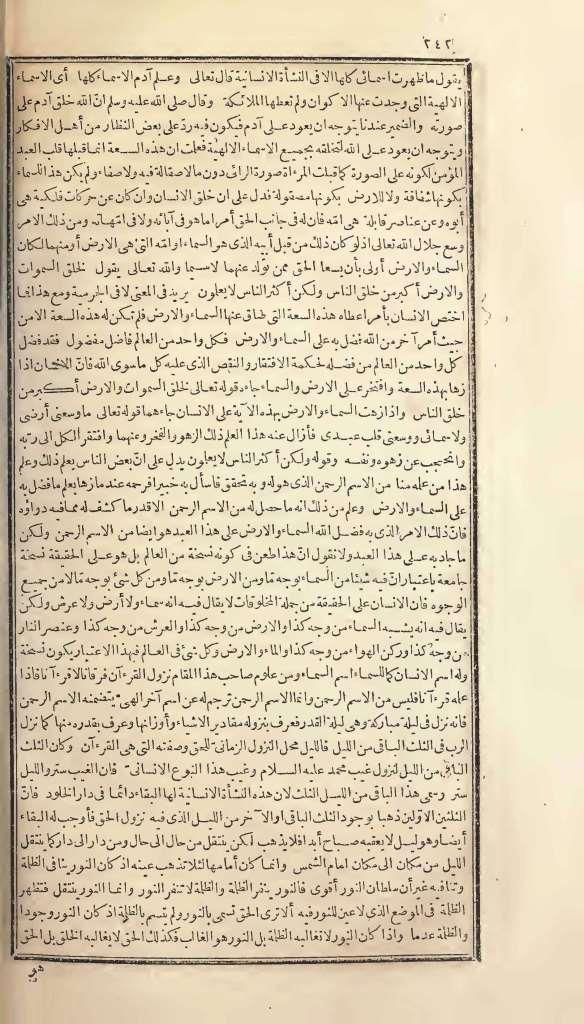 ٢٤٢
يقول ما ظهرت اسمائى كلها الا فى النشأة الانسانية قال تعالى وعلم آدم الاسماء كلها أى الاسماء
الالهية التى وجدت عنها الاكوان ولم تعطها الملائكة وقال صلى الله عليه وسلم ان الله خلق آدم على
صورته والضمير عندنا يتوجه ان يعود على آدم فيكون فيه رد على بعض النظار من أهل الافكار
ويتوجه ان يعود على الله لتخلقه بجميع الاسماء الالهية فعلمت ان هذه السعة انما قبلها قلب العبد
المؤمن لكونه على الصورة كما قبلت المرآة صورة الرائى دون ما لا صقالة فيه ولا صفاء ولم يكن هذا للسماء
لكونها شفافة ولا للارض لكونها مصقولة فدل على ان خلق الانسان وان كان عن حركات فلكية هى
أبوه وعن عناصر قابلة هى امه فان له فى جانب الحق أمرا ما هو فى آبائه ولا فى امهاته ومن ذلك الامر
وسع جلال الله تعالى اذ لو كان ذلك من قبل أبيه الذى هو السماء وامه التى هى الارض أو منهما لكان
السماء والارض أولى بأن يسعا الحق ممن تولد عنهما لاسيما والله تعالى يقول لخلق السموات
والارض أكبر من خلق الناس ولكن أكثر الناس لا يعلمون يريد فى المعنى لا فى الجرمية ومع هذا فما
اختص الانسان بأمر اعطاه هذه السعة التى ضاق عنها السماء والارض فلم تكن له هذه السعة الا من
حيث أمر آخر من الله فضل به على السماء والارض فكل واحد من العالم فاضل مفضول فقد فضل
كل واحد من العالم من فضله لحكمة الافتقار والنقص الذى عليه كل ما سوى الله فان الانسان اذا
زها بهذه السعة وافتخر على الارض والسماء جاءه قوله تعالى لخلق السموات والارض أكبر من
خلق الناس واذا زهت السماء والارض بهذه الآية على الانسان جاءهما قوله تعالى ما وسعنى أرضى
ولا سمائى ووسعنى قلب عبدى فأزال عنه هذا العلم ذلك الزهو والفخر وعنهما وافتقر الكل الى ربه
وانحجب عن زهوه ونفسه وقوله ولكن أكثر الناس لا يعلمون يدل على ان بعض الناس يعلم ذلك وعلم
هذا من علمه منا من الاسم الرحمن الذى هو له وبه تحقق فاسأل به خبيرا فرحمه عند ما زها بعلم ما فضل به
على السماء والارض وعلم من ذلك انه ما حصل له من الاسم الرحمن الا قدر ما كشف له مما فيه دواؤه
فان ذلك الامر الذى به فضل الله السماء والارض على هذا العبد هو ايضا من الاسم الرحمن ولكن
ما جاد به على هذا العبد ولا نقول ان هذا طعن فى كونه نسخة من العالم بل هو على الحقيقة نسخة
جامعة باعتبار ان فيه شيئا من السماء بوجه تما ومن الارض بوجه تما ومن كل شئ بوجه تما لا من جميع
الوجوه فان الانسان على الحقيقة من جملة المخلوقات لا يقال فيه انه سماء ولا أرض ولا عرش ولكن
يقال فيه انه يشبه السماء من وجه كذا والارض من وجه كذا والعرش من وجه كذا وعنصر النار
من وجه كذا وركن الهواء من وجه كذا والماء والارض وكل شئ فى العالم فبهذا الاعتبار يكون نسخة
وله اسم الانسان كما للسماء اسم السماء ومن علوم صاحب هذا المقام نزول القرءآن فرقانا لا قرءآنا فاذا
علمه قرءآنا فليس من الاسم الرحمن وانما الاسم الرحمن ترجم له عن اسم آخر الهى يتضمنه الاسم الرحمن
فانه نزل فى ليلة مباركة وهى ليلة القدر فعرف بنزوله مقادير الاشياء وأوزانها وعرف بقدره منها كما نزل
الرب فى الثلث الباقى من الليل فالليل محل النزول الزمانى للحق وصفته التى هى القرءآن وكان الثلث
الباقى من الليل لنزول غيب محمد عليه السلام وغيب هذا النوع الانسانى فان الغيب ستر والليل
ستر وسمى هذا الباقى من الليل الثلث لان هذه النشأة الانسانية لها البقاء دائما فى دار الخلود فان
الثلثين الاولين ذهبا بوجود الثلث الباقى او الآخر من الليل الذى فيه نزول الحق فأوجب له البقاء
أيضا وهو ليل لا يعقبه صباح أبدا فلا يذهب لكن ينتقل من حال الى حال ومن دار الى دار كما ينتقل
الليل من مكان الى مكان امام الشمس وانما كان أمامها لئلا تذهب عينه اذ كان النور ينافى الظلمة
وتنافيه غير أن سلطان النور أقوى فالنور ينفر الظلمة والظلمة لا تنفر النور وانما النور ينتقل فتظهر
الظلمة فى الموضع الذى لا عين للنور فيه ألا ترى الحق تسمى بالنور ولم يتسم بالظلمة اذ كان النور وجودا
والظلمة عدما واذا كان النور لا تغالبه الظلمة بل النور هو الغالب فكذلك الحق لا يغالبه الخلق بل الحق
هو